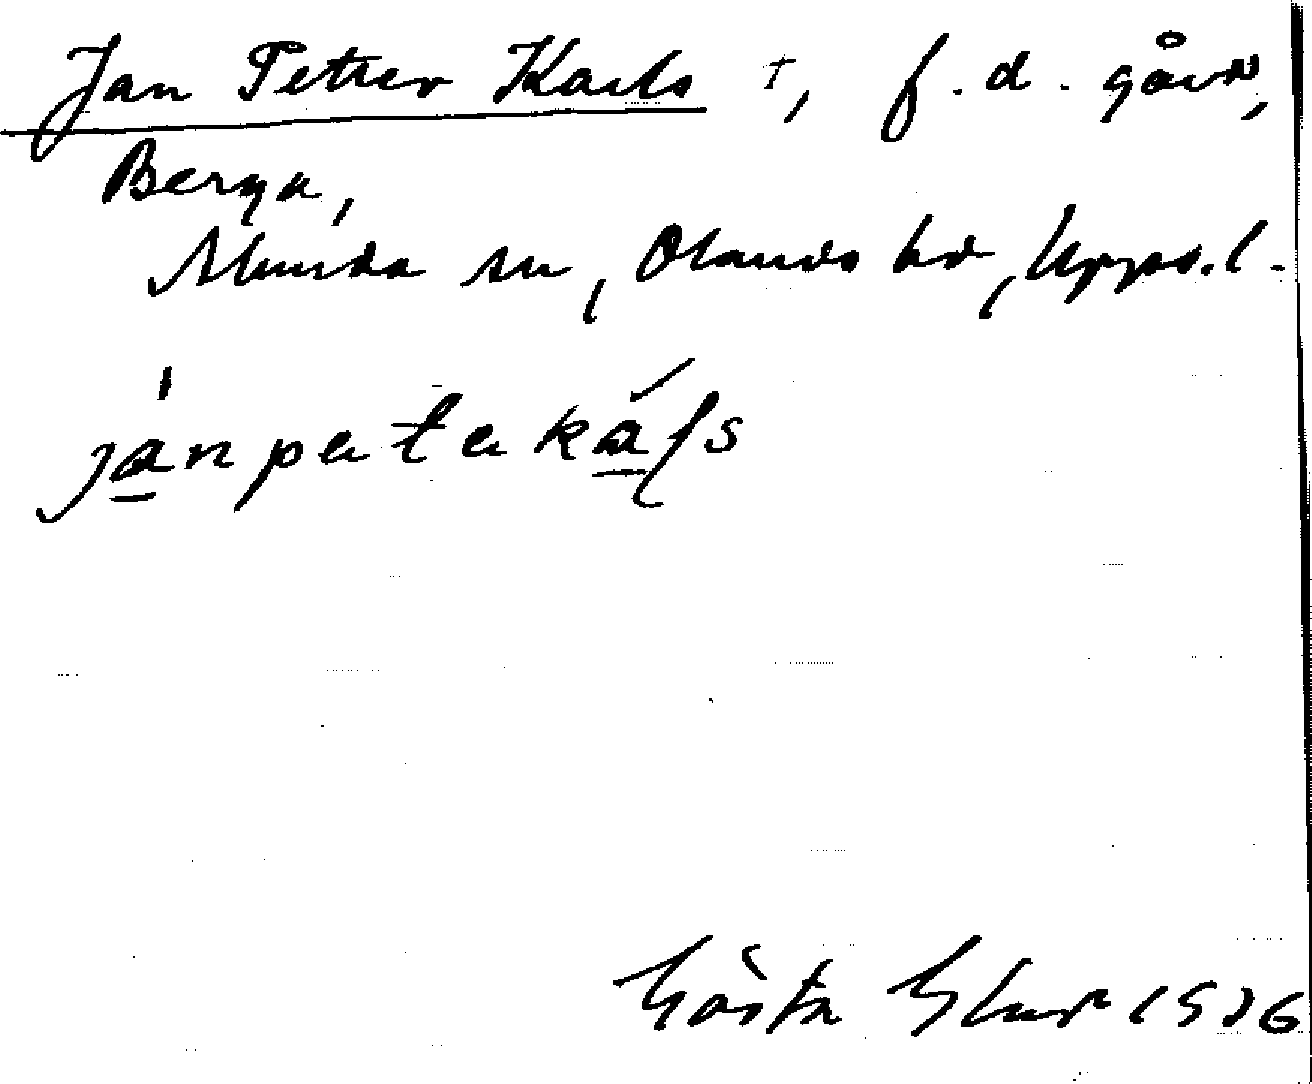 Jan Petter Karls †, f.d. gård,
Berga,
Alunda sn, Olands hd, Upps.l.
janpetekáʃs
Gösta 1936